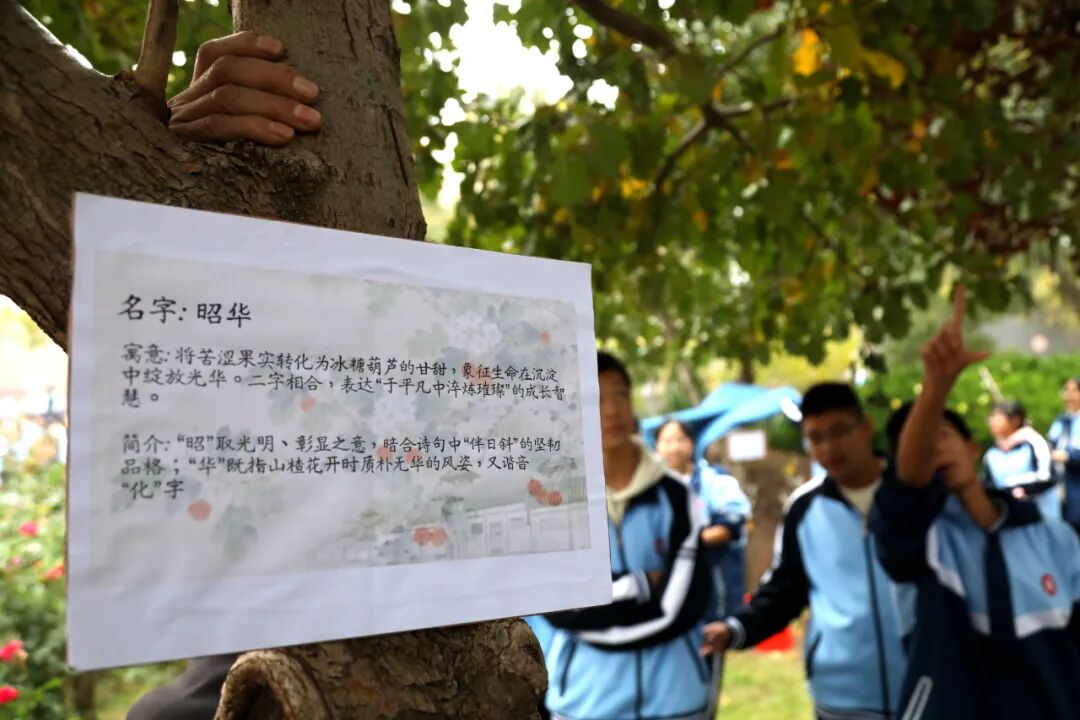 名字: 昭华
寓意: 将苦涩果实转化为冰糖葫芦的甘甜，象征生命在沉淀
中绽放光华。二字相合，表达“于平凡中淬炼璀璨”的成长智
慧。
简介: “昭”取光明、彰显之意，暗合诗句中“伴日斜”的坚韧
品格；“华”既指山楂花开时质朴无华的风姿，又谐音
“化”字